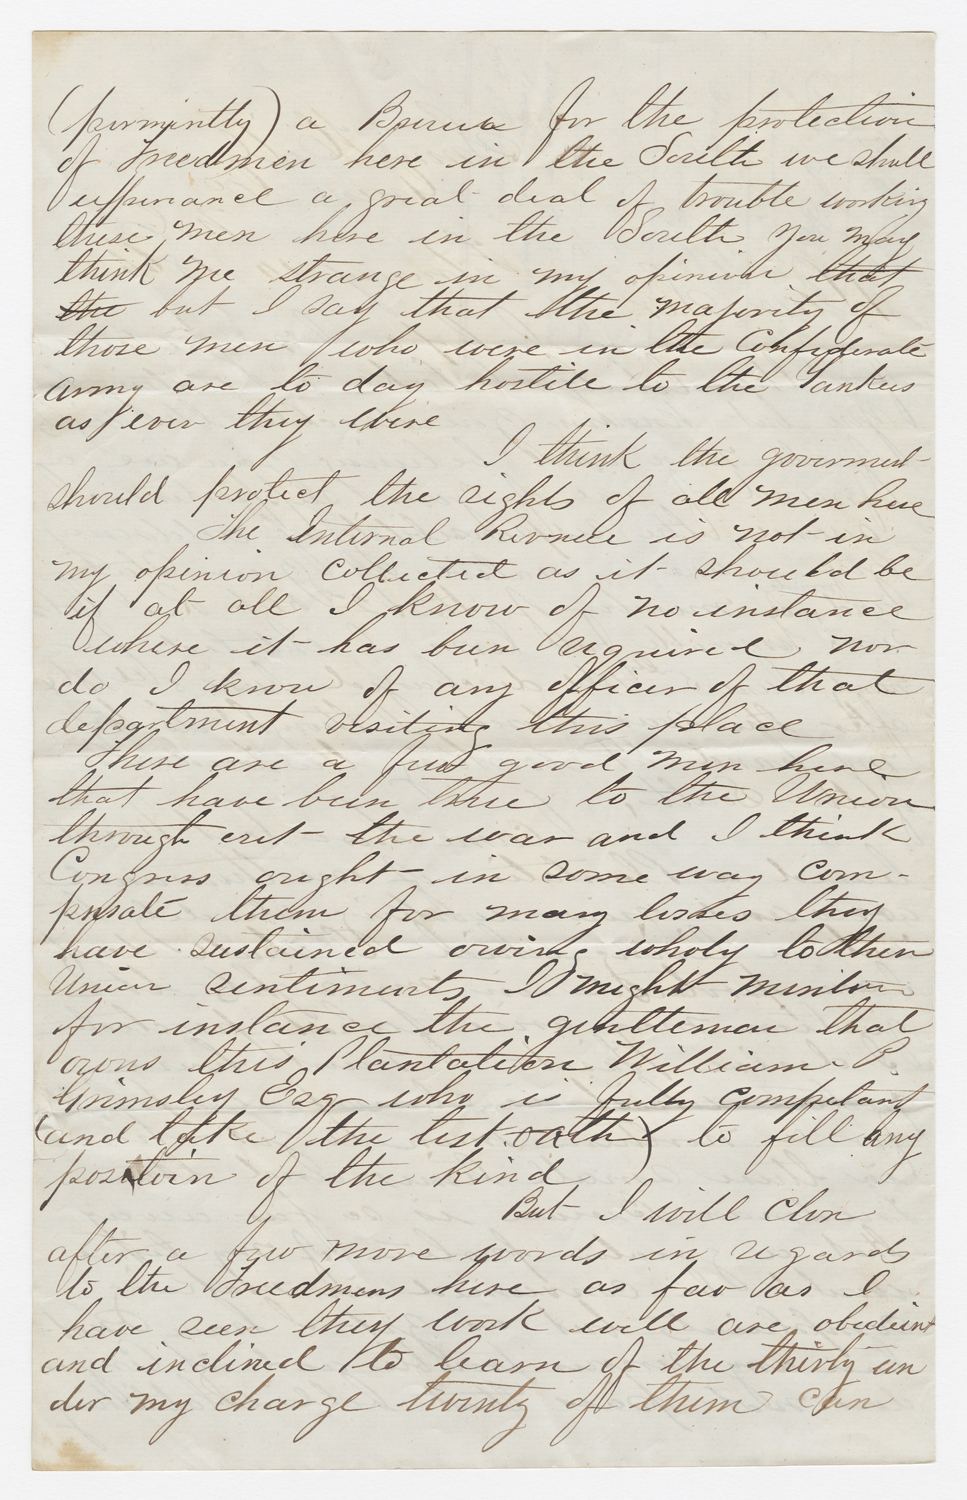 (permintly) a Bureua for the protection
of Freedmen here in the South we shall
expperiance a great deal of trouble working
these men here in the South. You may
think me strange in my opinion that
the but I say that the majority of
those men who were in the Confederate
army are to day hostile to the Yankees
as ever they were
I think the goverment
should protect the rights of all men here
The Internal Revnue is not in
my opinion Collected as it should be
if at all I know of no instance
where it has been required nor
do I know of any officer of that
department visiting this place
There are a few good men here
that have been true to the Union
through out the war and I think
Congress ought in some way com-
pensate them for many losses they
have sustained owing wholy to their
Union sentiments I might mintion
for instance the gentleman that
owns this Plantation William P.
Grimsley Esqr who is fully competant
(and take the test oath) to fill any
position of the kind
But I will Close
after a few more words in regards
to the Freedmens here as far as I
have seen they work well are obedient
and inclined to learn of the thirty un
der my charge twenty of them can